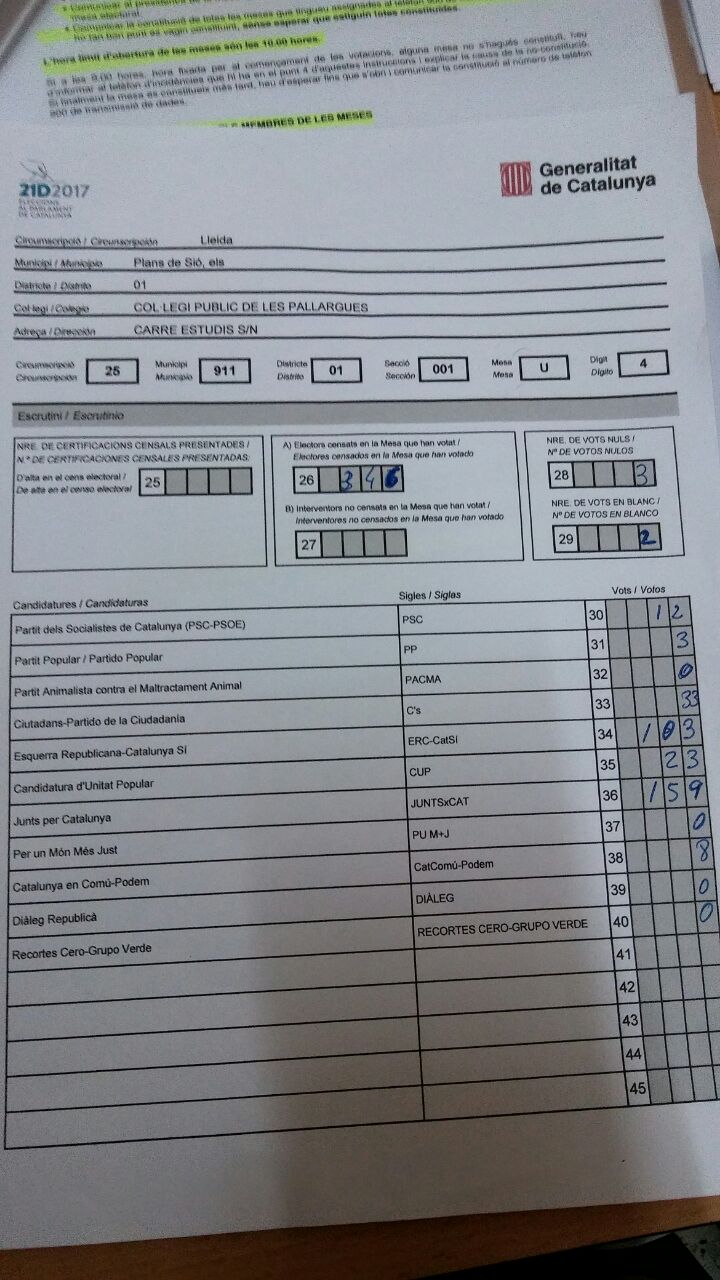 mesa electoral.
L'hora límit d'obertura de les meses són les 10.00 hores.
Si a les 9.00 hores, hora fixada per al començament de les votacions, alguna mesa no s'hagués constituït, heu
d'informar al telèfon d'incidències que hi ha en el punt 4 d'aquestes instruccions i explicar la causa de la no-constitució.
Si finalment la mesa es constitueix més tard, heu d'esperar fins que s'obri i comunicar la constitució al número de telèfon
900 de transmissió de dades.
MEMBRES DE LES MESES
21D2017
ELECCIONS
AL PARLAMENT
DE CATALUNYA
Generalitat
de Catalunya
Circumscripció / Circunscripción Lleida
Municipi / Municipio Plans de Sió, els
Districte / Distrito 01
Col·legi / Colegio COL·LEGI PUBLIC DE LES PALLARGUES
Adreça / Dirección CARRE ESTUDIS S/N
Circumscripció Circunscripción 25 Municipi Municipio 911 Districte Distrito 01 Secció Sección 001 Mesa Mesa U Dígit Dígito 4
Escrutini / Escrutinio
NRE. DE CERTIFICACIONS CENSALS PRESENTADES /
N.º DE CERTIFICACIONES CENSALES PRESENTADAS:
D'alta en el cens electoral /
De alta en el censo electoral 25
A) Electors censats en la Mesa que han votat /
Electores censados en la Mesa que han votado
26 346
B) Interventors no censats en la Mesa que han votat /
Interventores no censados en la Mesa que han votado
27
NRE. DE VOTS NULS /
Nº DE VOTOS NULOS
28 3
NRE. DE VOTS EN BLANC /
Nº DE VOTOS EN BLANCO
29 2
Candidatures / Candidaturas Sigles / Siglas Vots / Votos
Partit dels Socialistes de Catalunya (PSC-PSOE) PSC 30 12
Partit Popular / Partido Popular PP 31 3
Partit Animalista contra el Maltractament Animal PACMA 32 0
Ciutadans-Partido de la Ciudadanía C's 33 33
Esquerra Republicana-Catalunya Sí ERC-CatSí 34 103
Candidatura d'Unitat Popular CUP 35 23
Junts per Catalunya JUNTSxCAT 36 159
Per un Món Més Just PU M+J 37 0
Catalunya en Comú-Podem CatComú-Podem 38 8
Diàleg Republicà DIÀLEG 39 0
Recortes Cero-Grupo Verde RECORTES CERO-GRUPO VERDE 40 0
41
42
43
44
45